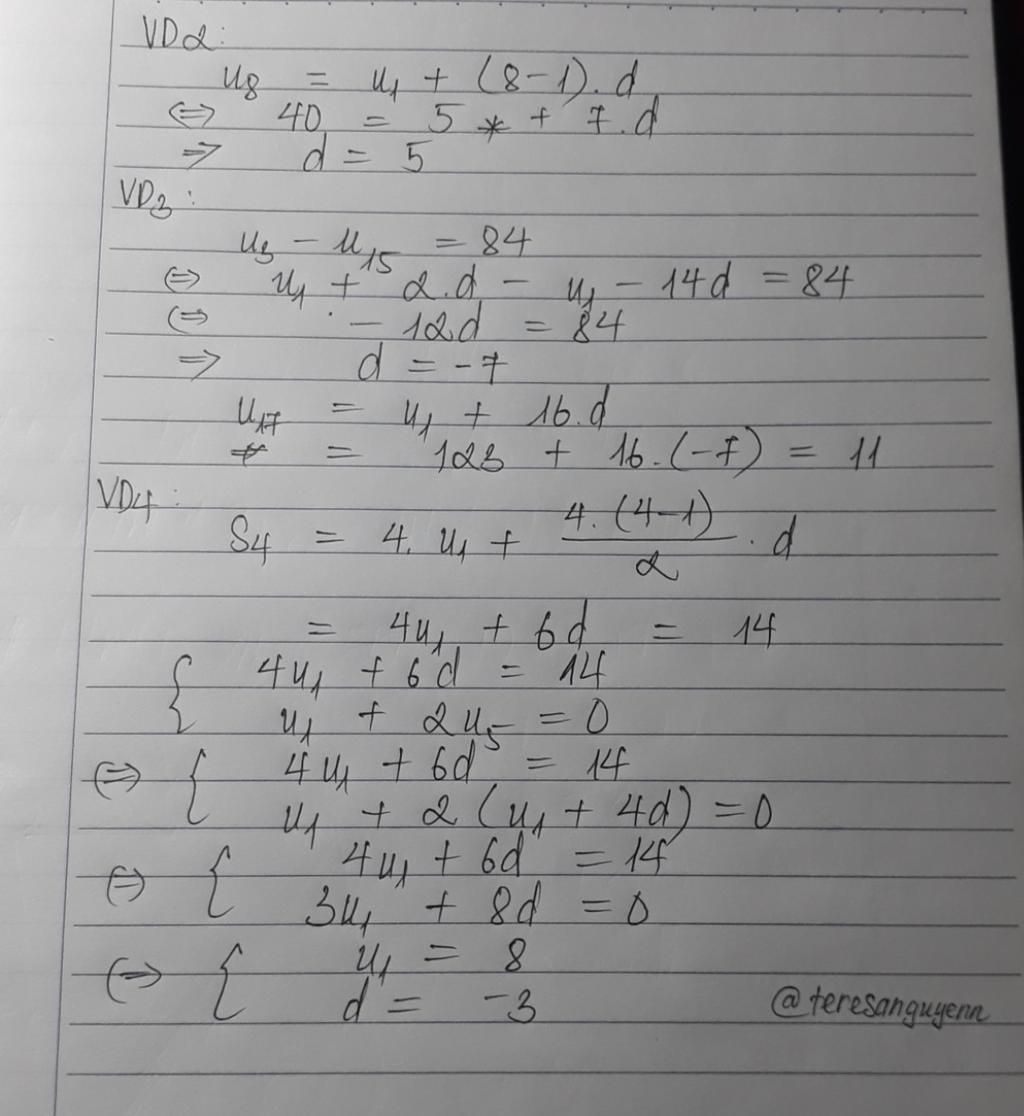 VD2:
u8 = u1 + (8-1).d
⇔ 40 = 5 + 7.d
⇒ d = 5
VD3:
u3 - u15 = 84
⇔ u1 + 2.d - u1 - 14d = 84
⇔ - 12d = 84
⇒ d = -7
u17 = u1 + 16.d
= 123 + 16.(-7) = 11
VD4:
S4 = 4. u1 + 4.(4-1)/2 . d
= 4u1 + 6d = 14
{ 4u1 + 6d = 14
u1 + 2u5 = 0
⇔ { 4u1 + 6d = 14
u1 + 2(u1 + 4d) = 0
⇔ { 4u1 + 6d = 14
3u1 + 8d = 0
⇔ { u1 = 8
d = -3
@teresanguyenn